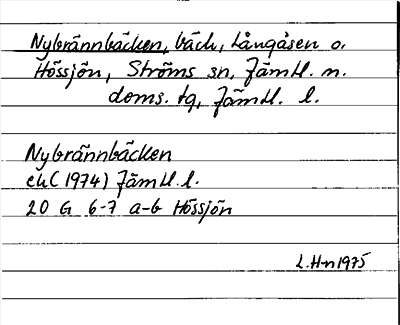 Nybrännbäcken, bäck, Långåsen o.
Hössjön, Ströms sn, Jämtl. n.
doms. tg, Jämtl. l.
Nybrännbäcken
ek (1974) Jämtl. l.
20 G 6-7 a-b Hössjön
L.H-n 1975